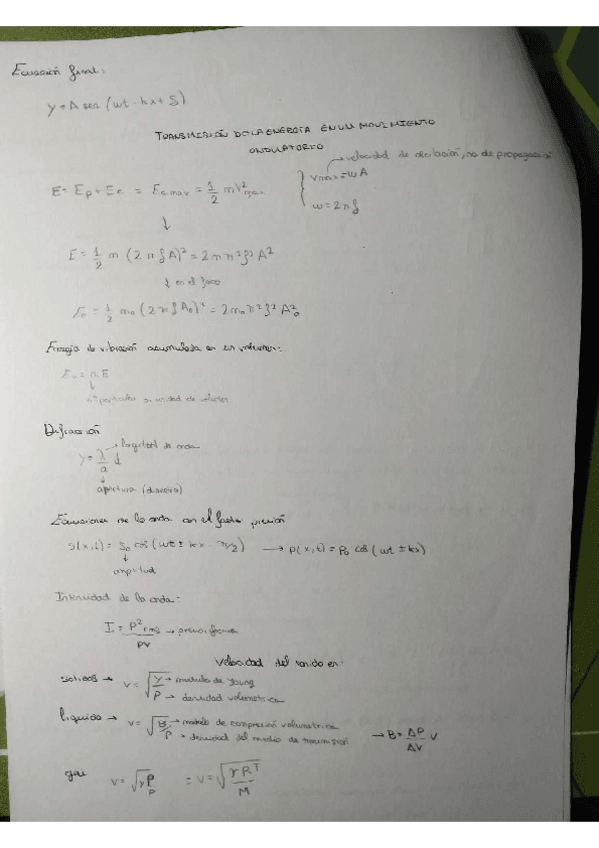 Ecuación final:
y = A sen (wt - kx + δ)
TRANSMISIÓN DE LA ENERGÍA EN UN MOVIMIENTO
ONDULATORIO
→ velocidad de vibración, no de propagación
E = Ep + Ec = Ec max = 1/2 m V²max
{ Vmax = wA
w = 2πf
↓
E = 1/2 m (2πfA)² = 2mπ²f²A²
↓ en el foco
E₀ = 1/2 m₀ (2πfA₀)² = 2m₀π²f²A₀²
Energía de vibración acumulada en un volumen:
Ev = n E
↓
nº partículas por unidad de volumen
Difracción
→ longitud de onda
y = λ/a d
↓
apertura (diámetro)
Ecuaciones de la onda con el factor presión
s(x,t) = S₀ cos (wt ± kx - π/2) → p(x,t) = P₀ cos (wt ± kx)
↓
amplitud
Intensidad de la onda:
I = P²rms/ρv → presión
Velocidad del sonido en:
sólidos → v = √(Y/ρ) Y → modulo de Young
ρ → densidad volumetrica
líquidos → v = √(B/ρ) B → modulo de compresión volumetrica → B = ΔP/ΔV V
ρ → densidad del medio de transmisión
gas v = √(γP/ρ) = v = √(γRT/M)